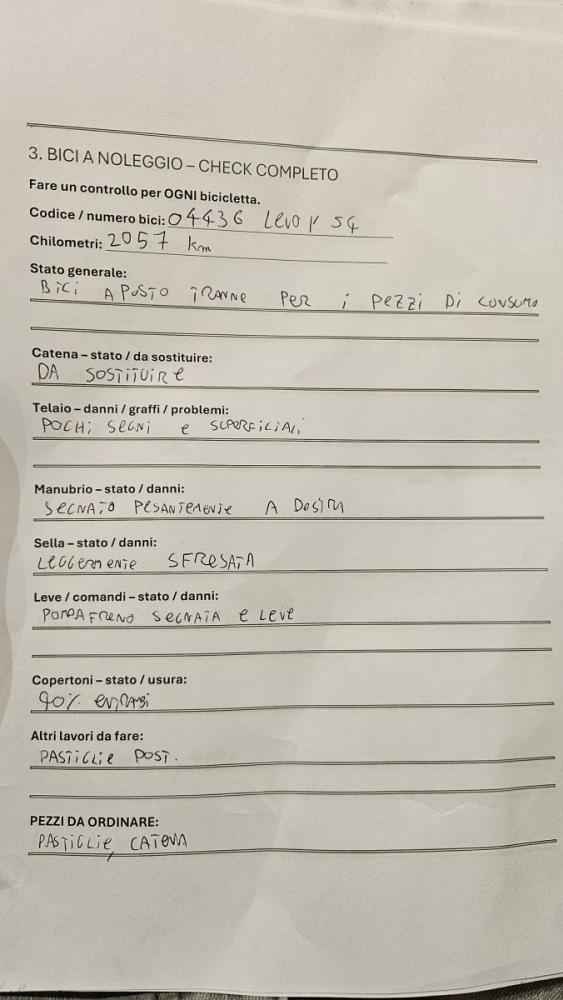 3. BICI A NOLEGGIO – CHECK COMPLETO
Fare un controllo per OGNI bicicletta.
Codice / numero bici: 04436 Levo S4
Chilometri: 2057 km
Stato generale:
BICI A POSTO TRANNE PER i PEZZI DI CONSUMO
Catena – stato / da sostituire:
DA SOSTITUIRE
Telaio – danni / graffi / problemi:
POCHI SEGNI e SUPERFICIALI
Manubrio – stato / danni:
SEGNATO PESANTEMENTE A DESTRA
Sella – stato / danni:
LEGGERMENTE SFRESATA
Leve / comandi – stato / danni:
POMPA FRENO SEGNATA E LEVE
Copertoni – stato / usura:
90% ENTRAMBI
Altri lavori da fare:
PASTIGLIE POST.
PEZZI DA ORDINARE:
PASTIGLIE, CATENA